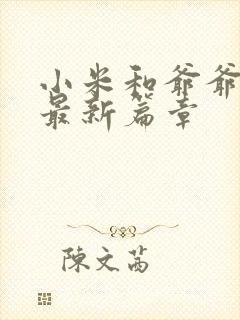 小米和爷爷
最新篇章
陳文茜